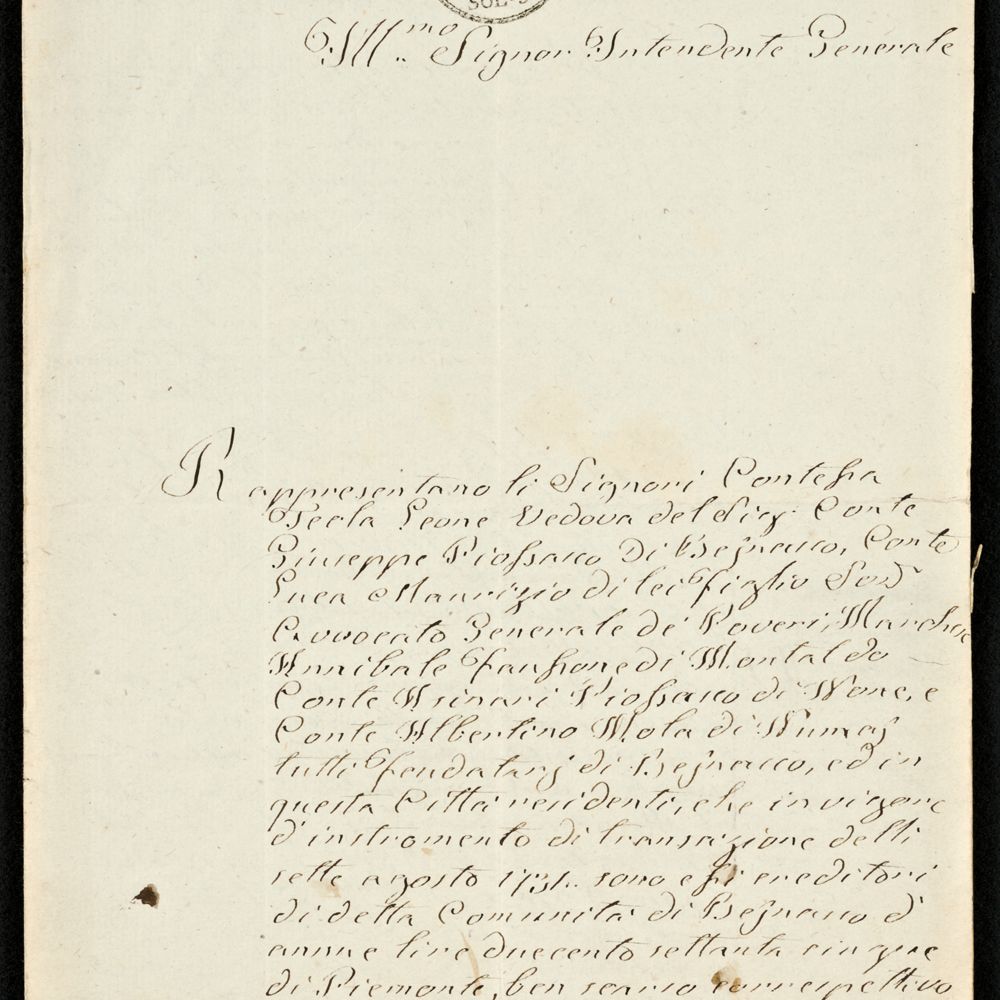 SOL. 5
Ill.mo Signor Intendente Generale
Rappresentano li Signori Contessa
Tecla Leone Vedova del Sig.r Conte
Giuseppe Piossasco Di Bejnasco, Conte
Luca Maurizio di lei figlio
Avvocato Generale de' Poveri, Marchese
Annibale Faussone di Montaldo
Conte Asinari Piossasco di None, e
Conte Albertino Mola di
tutti feudatarj di Bejnasco, ed in
questa Città residenti, che in vigore
d'instromento di transazione delli
sette agosto 1731. sono essi creditori
di detta Comunità di Bejnasco d'
annue lire duecento settanta cinque
di Piemonte, ben scarso correspettivo